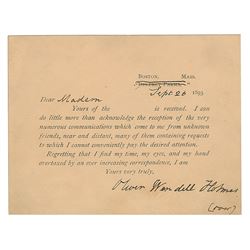 Boston, Mass.
Sept. 26 1893
Dear Madam
Yours of the is received. I can
do little more than acknowledge the reception of the very
numerous communications which come to me from unknown
friends, near and distant, many of them containing requests
to which I cannot conveniently pay the desired attention.
Regretting that I find my time, my eyes, and my hand
overtaxed by an ever increasing correspondence, I am
Yours very truly,
Oliver Wendell Holmes
(over)